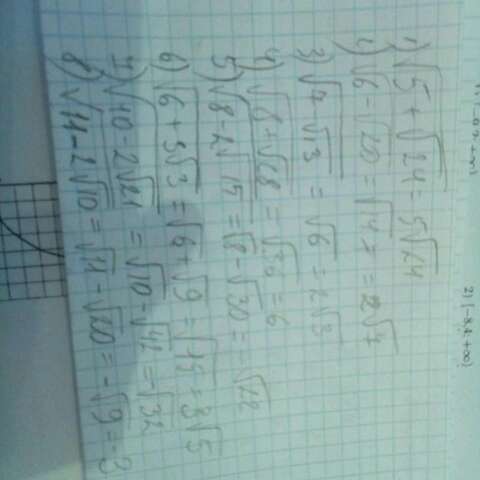 1) √5+√24 = 5√24
2) √6-√20 = √14 = 2√7
3) √7-√13 = √6 = 2√3
4) √8+√28 = √36 = 6
5) √8-2√15 = √8-√30 = -√22
6) √6+3√3 = √6+√9 = √45 = 3√5
7) √10-2√21 = √10-√42 = -√32
8) √11-2√10 = √11-√20 = -√9 = -3